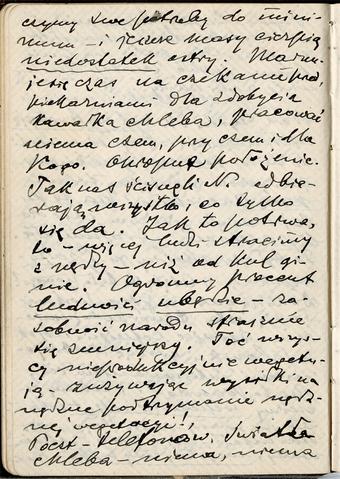 czymy swe potrzeby do mini-
mum – i jeszcze masy cierpią
niedostatek ostry. Marnu-
je się czas na czekaniu przed
piekarniami dla zdobycia
kawałka chleba, pracować
niema czem, przy czem i dla
kogo. Okropne położenie.
Tak nas ścisnęli N. odbie-
rają wszystko, co tylko
się da. Jak to potrwa,
to – więcej ludzi stracimy
z nędzy – niż od kul gi-
nie. Ogromny procent
ludności ubędzie – za-
sobność narodu strasznie
się zmniejszy. Toć wszys-
cy nieprodukcyjnie wegetu-
ją – zużywając wysiłki na
nędzne podtrzymanie nędz-
nej wegetacji!,
Poczt – telefonów, światła
chleba – niema, niema